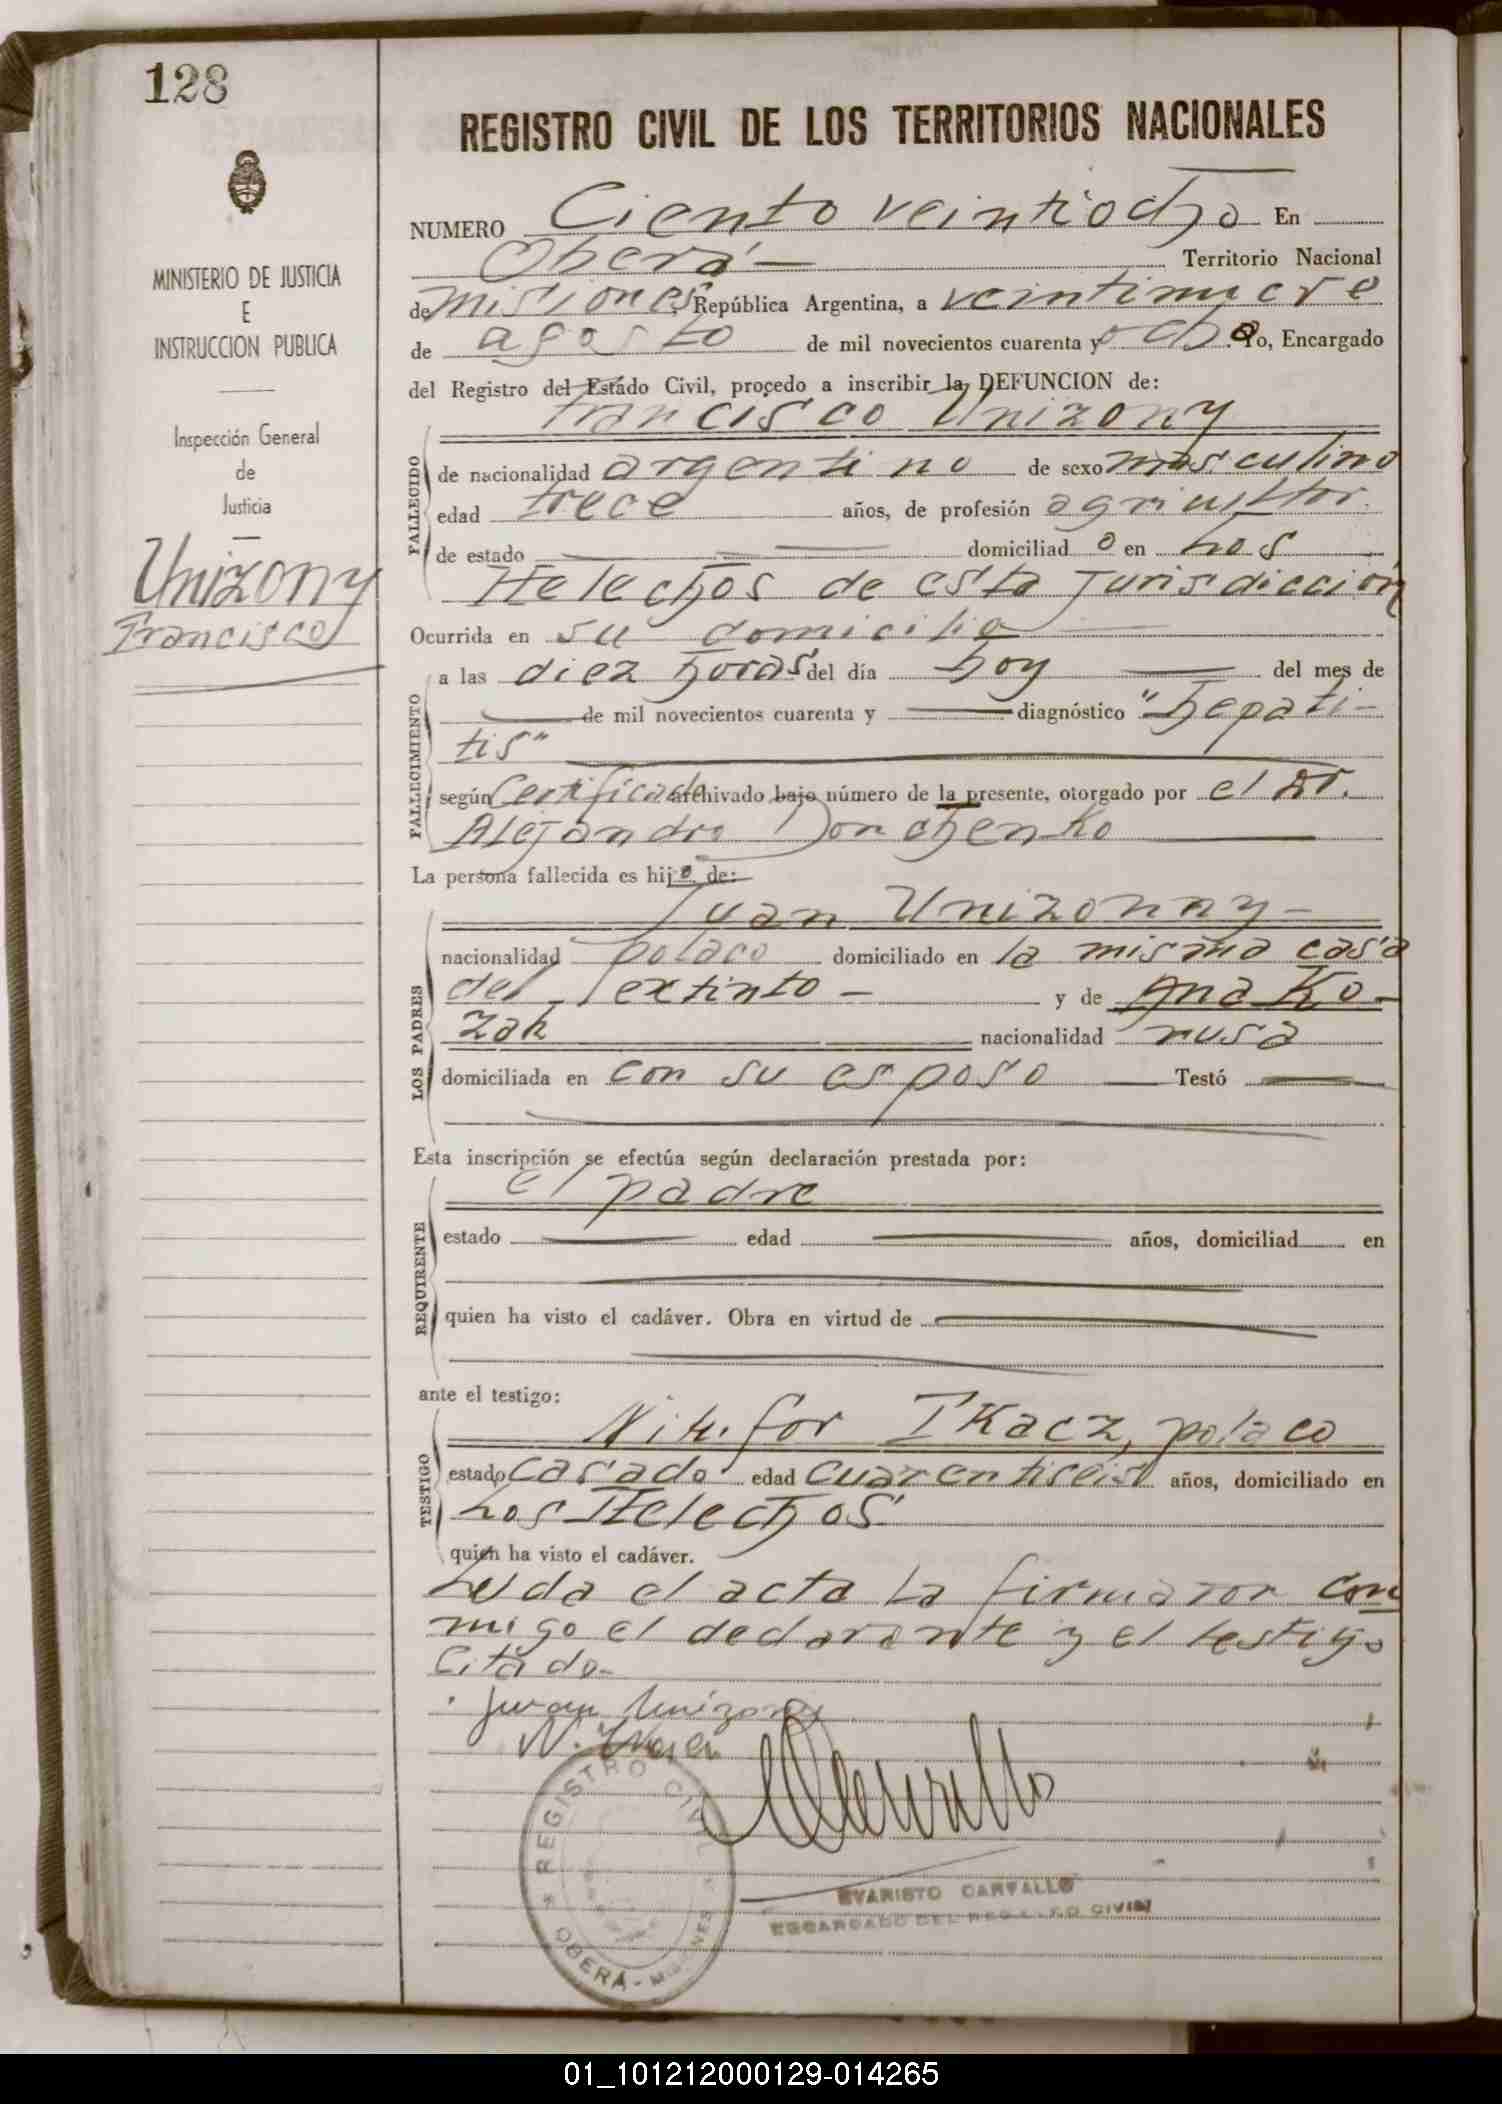 128
REGISTRO CIVIL DE LOS TERRITORIOS NACIONALES
MINISTERIO DE JUSTICIA
E
INSTRUCCION PUBLICA
Inspección General
de
Justicia
Unizony
Francisco
NUMERO Ciento veintiocho En
Oberá - Territorio Nacional
de Misiones, República Argentina, a veintinueve
de agosto de mil novecientos cuarenta y ocho. Yo, Encargado
del Registro del Estado Civil, procedo a inscribir la DEFUNCION de:
Francisco Unizony
FALLECIDO
de nacionalidad argentino de sexo masculino
edad trece años, de profesión agricultor.
de estado domiciliado en Los
Helechos de esta Jurisdicción
Ocurrida en su domicilio
FALLECIMIENTO
a las diez horas del día hoy del mes de
de mil novecientos cuarenta y diagnóstico "hepati-
tis"
según certificado archivado bajo número de la presente, otorgado por el Dr.
Alejandro Donchenko
La persona fallecida es hijo de:
LOS PADRES
Juan Unizonny -
nacionalidad polaco domiciliado en la misma casa
del extinto - y de Ana Ko-
zak nacionalidad rusa
domiciliada en con su esposo Testó
Esta inscripción se efectúa según declaración prestada por:
REQUIRENTE
el padre
estado edad años, domiciliad en
quien ha visto el cadáver. Obra en virtud de
ante el testigo:
TESTIGO
Nikifor TKacz, polaco
estado casado edad cuarentiseis años, domiciliado en
Los Helechos
quien ha visto el cadáver.
Leida el acta la firmaron con
migo el declarante y el testigo
citado.-
Juan Unizony
N.
REGISTRO CIVIL
OBERÁ - MISIONES
EVARISTO CARVALLO
ENCARGADO DEL REGISTRO CIVIL
01_101212000129-014265